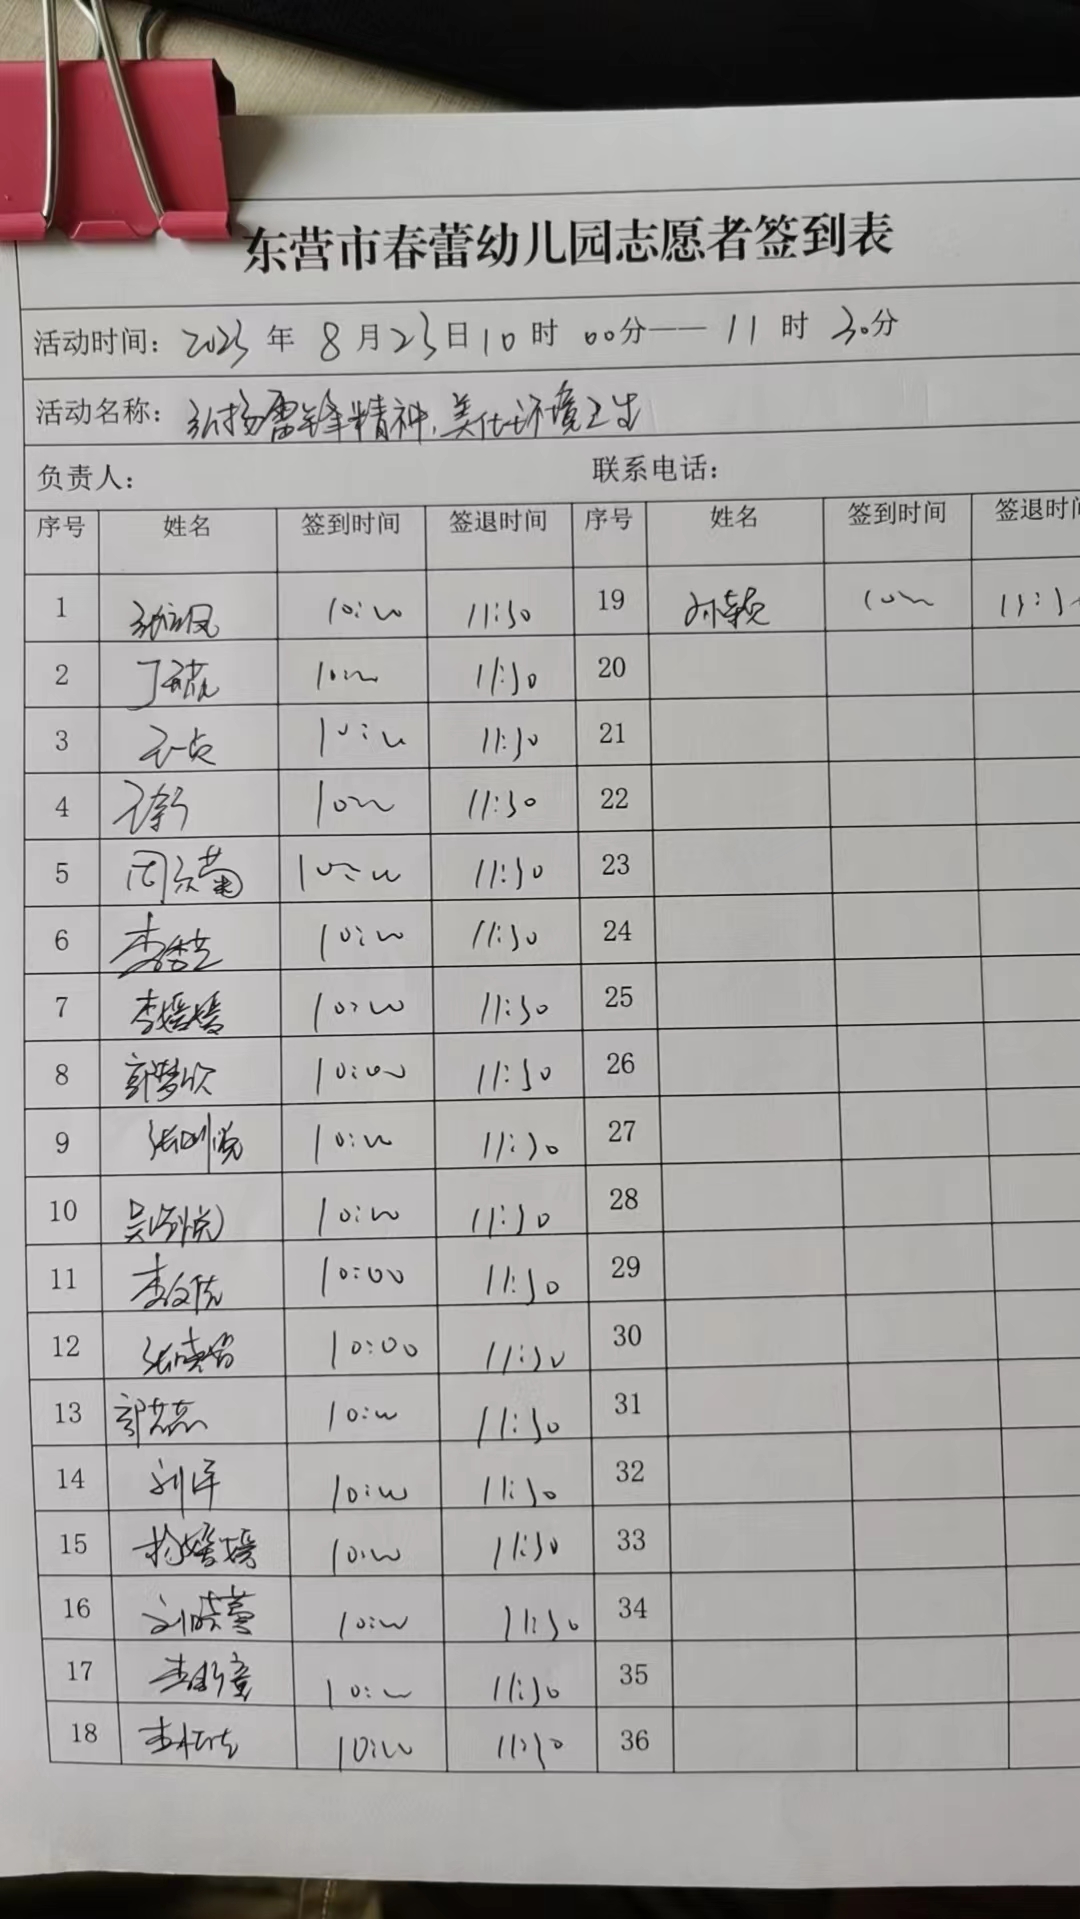 东营市春蕾幼儿园志愿者签到表
活动时间: 2023 年 8 月 23 日 10 时 00 分—— 11 时 30 分
活动名称: 弘扬雷锋精神,美化环境卫生
负责人: 联系电话:
序号 姓名 签到时间 签退时间 序号 姓名 签到时间 签退时间
1 10:00 11:30 19 孙颖 10:00
2 丁 10:00 11:30 20
3 10:00 11:30 21
4 10:00 11:30 22
5 周 菊 10:00 11:30 23
6 李 10:00 11:30 24
7 李媛媛 10:00 11:30 25
8 郭梦欣 10:00 11:30 26
9 张 悦 10:00 11:30 27
10 吴 悦 10:00 11:30 28
11 李文 10:00 11:30 29
12 张 10:00 11:30 30
13 郭 10:00 11:30 31
14 刘洋 10:00 11:30 32
15 杨媛媛 10:00 11:30 33
16 刘晓萱 10:00 11:30 34
17 李 童 10:00 11:30 35
18 李 10:00 11:30 36